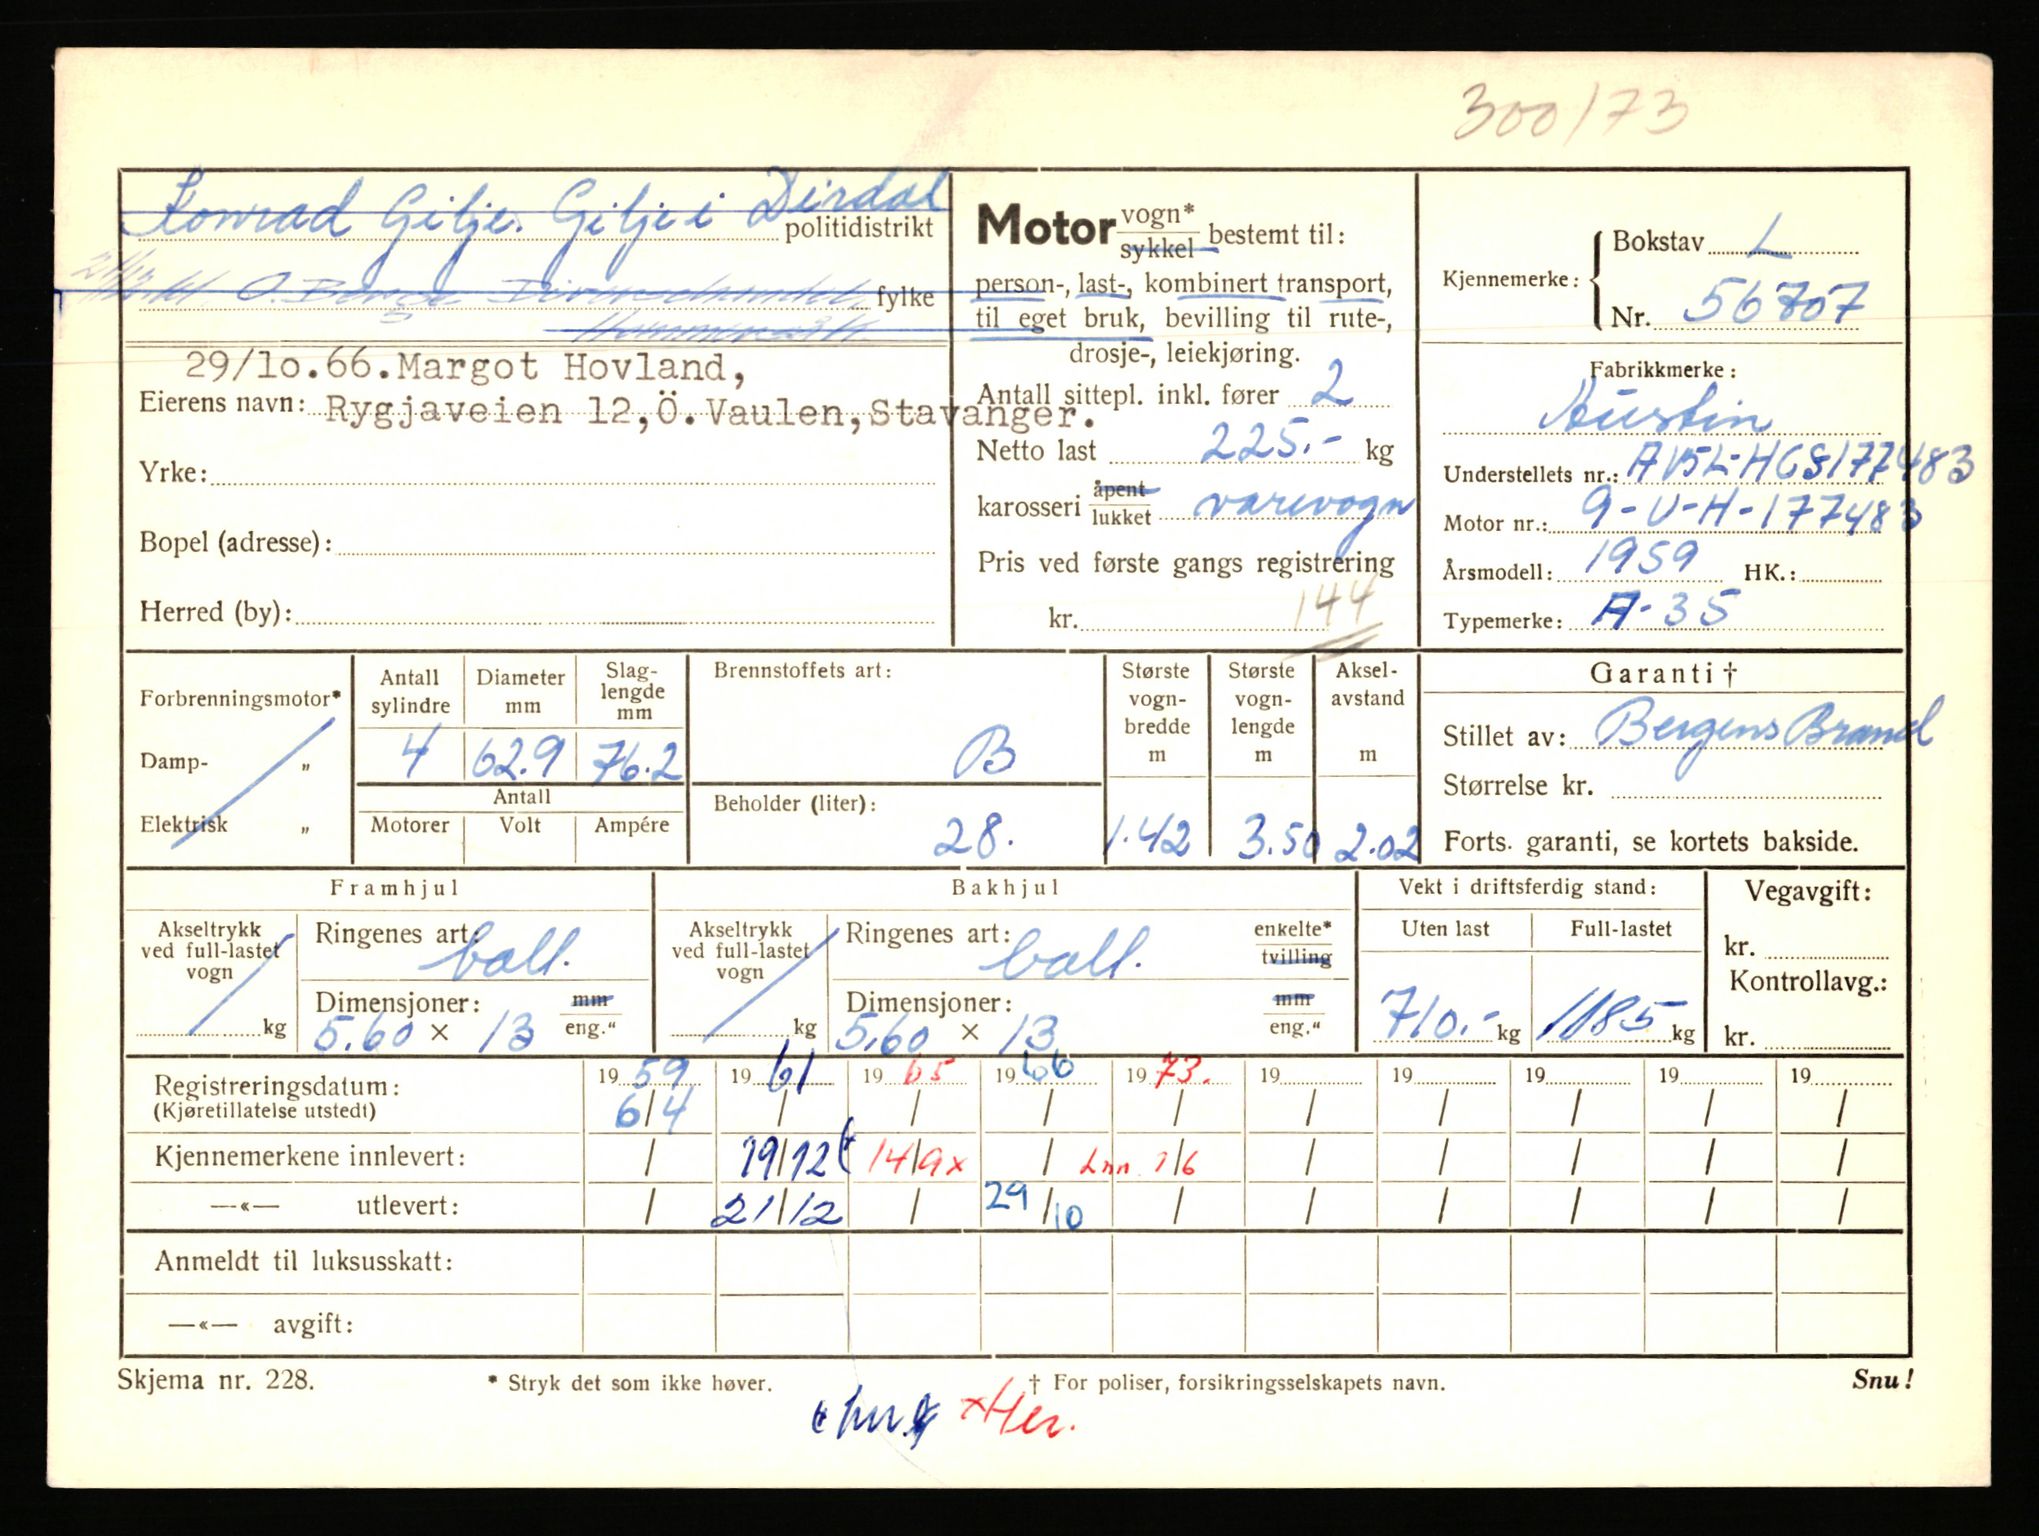 300/73
Konrad Gilje. Gilje i Dirdal
politidistrikt
O. Berge Diversehandel,
fylke
29/10.66.Margot Hovland,
Eierens navn: Rygjaveien 12,Ö.Vaulen,Stavanger.
Yrke:
Bopel (adresse):
Herred (by):
Motor vogn* sykkel bestemt til:
person-, last-, kombinert transport,
til eget bruk, bevilling til rute-,
drosje-, leiekjøring.
Antall sittepl. inkl. fører 2
Netto last 225.- kg
karosseri åpent lukket varevogn
Pris ved første gangs registrering
kr. 144
Kjennemerke: Bokstav L
Nr. 56707
Fabrikkmerke:
Austin
Understellets nr.: AV5L-HCS177483
Motor nr.: 9-U-H-177483
Årsmodell: 1959 HK.:
Typemerke: A-35
Forbrenningsmotor*
Damp- „
Elektrisk „
Antall sylindre
4
Diameter mm
62.9
Slag-lengde mm
76.2
Antall
Motorer Volt Ampére
Brennstoffets art:
B
Beholder (liter):
28.
Største vogn-bredde m
1.42
Største vogn-lengde m
3.50
Aksel-avstand m
2.02
Garanti †
Stillet av: Bergens Brand
Størrelse kr.
Forts. garanti, se kortets bakside.
Framhjul
Akseltrykk ved full-lastet vogn
kg
Ringenes art: ball.
Dimensjoner: mm
5.60 × 13 eng."
Bakhjul
Akseltrykk ved full-lastet vogn
kg
Ringenes art: ball. enkelte* tvilling
Dimensjoner: mm
5.60 × 13 eng."
Vekt i driftsferdig stand:
Uten last Full-lastet
710.- kg 1185 kg
Vegavgift:
kr.
Kontrollavg.:
kr.
Registreringsdatum: 19 59 19 61 19 65 19 66 19 73. 19 19 19 19 19
(Kjøretillatelse utstedt) 6/4 / / / / / / / / /
Kjennemerkene innlevert: / 19/12 14/9x / Inn 1/6 / / / / /
—«— utlevert: / 21/12 / 29/10 / / / / / /
Anmeldt til luksusskatt:
—«— avgift:
Skjema nr. 228.
* Stryk det som ikke høver.
† For poliser, forsikringsselskapets navn.
Snu!
xHer.